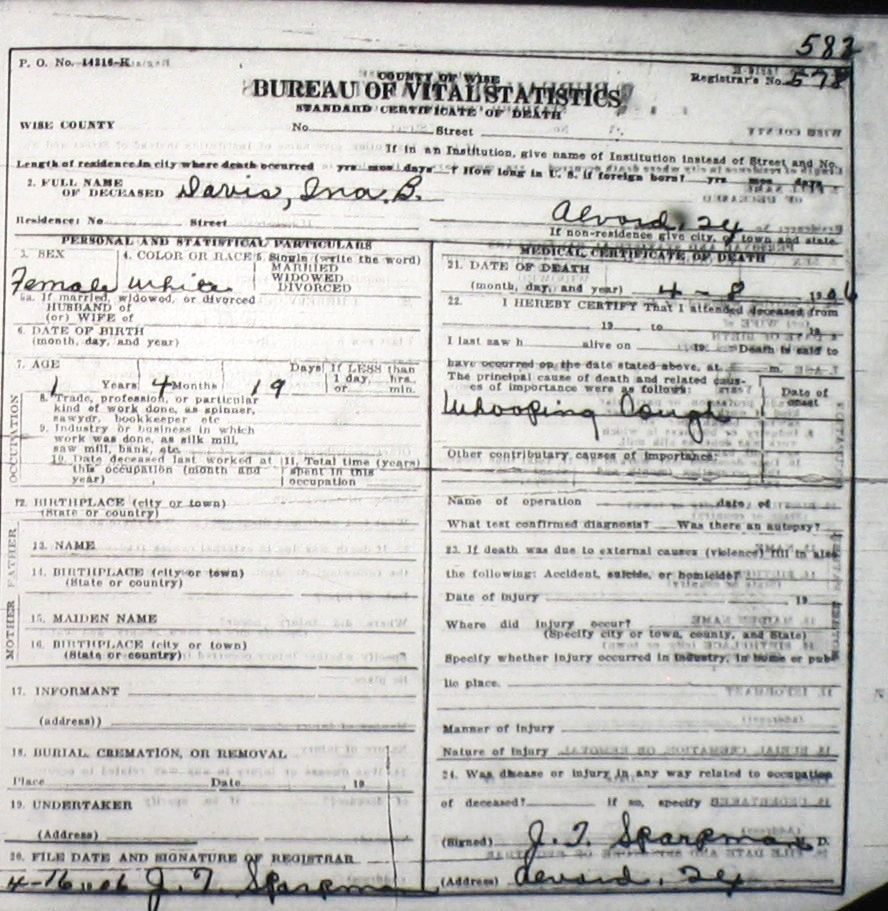 583
P. O. No. 14216-K
COUNTY OF WISE
Registrar's No. 578
BUREAU OF VITAL STATISTICS
STANDARD CERTIFICATE OF DEATH
WISE COUNTY No. Street
If in an Institution, give name of Institution instead of Street and No.
Length of residence in city where death occurred yrs mos days ? How long in U. S. if foreign born? yrs mos days
2. FULL NAME
OF DECEASED Davis, Ina. B.
Residence: No Street
Alvord, Tex
If non-residence give city, or town and state.
PERSONAL AND STATISTICAL PARTICULARS
3. SEX 4. COLOR OR RACE 5. Single (write the word)
MARRIED
WIDOWED
DIVORCED
Female White
5a. If married, widowed, or divorced
HUSBAND OF
(or) WIFE of
6. DATE OF BIRTH
(month, day, and year)
7. AGE Days If LESS than
1 day, hrs.
1 Years 4 Months 19 or min.
OCCUPATION
8. Trade, profession, or particular
kind of work done, as spinner,
sawyer, bookkeeper etc
9. Industry or business in which
work was done, as silk mill,
saw mill, bank, etc.
10. Date deceased last worked at
this occupation (month and
year)
11. Total time (years)
spent in this
occupation
12. BIRTHPLACE (city or town)
(State or country)
FATHER
13. NAME
14. BIRTHPLACE (city or town)
(State or country)
MOTHER
15. MAIDEN NAME
16. BIRTHPLACE (city or town)
(State or country)
17. INFORMANT
(address))
18. BURIAL, CREMATION, OR REMOVAL
Place Date , 19
19. UNDERTAKER
(Address)
20. FILE DATE AND SIGNATURE OF REGISTRAR
4-16 1906 J. T. Sparpman
MEDICAL CERTIFICATE OF DEATH
21. DATE OF DEATH
(month, day, and year) 4-8 1906
22. I HEREBY CERTIFY That I attended deceased from
, 19 , to 19
I last saw h alive on 19 Death is said to
have occurred on the date stated above, at m.
The principal cause of death and related caus-
es of importance were as follows:
Date of
onset
Whooping Cough
Other contributary causes of importance:
Name of operation date of
What test confirmed diagnosis? Was there an autopsy?
23. If death was due to external causes (violence) fill in also
the following: Accident, suicide, or homicide?
Date of injury 19
Where did injury occur?
(Specify city or town, county, and State)
Specify whether injury occurred in industry, in home or pub-
lic place.
Manner of injury
Nature of injury
24. Was disease or injury in any way related to occupation
of deceased? if so, specify
(Signed) J. T. Sparpman D.
(Address) Alvord, Tex